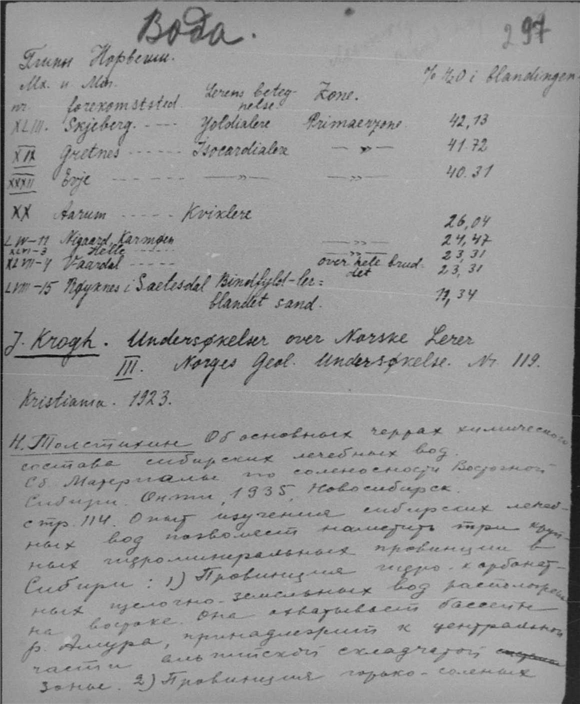 Вода.
297
Глины Норвегии.
№. и. №.
nr. forekomststed Lerens beteg- Zone. % H2O i blandingen
nelse.
XLIII. Skjeberg. ----- Yoldialere Primaerzone 42,13
XIX Gretnes ------ Isocardialere —„— 41.72
XXXII Evje ------ —„— —„— 40.31
XX Aarum ----- Kviklere 26,04
LIV-11 Nigaard, Karmøen —„— 24,47
XLVI-3 Helle —„— 23,31
XLVII-4 Vaardal over hele brud- 23,31
det
LVIII-15 i Saetesdal Bindfyldt-ler=
blandet sand. 19,34
J. Krogh. Undersøkelser over Norske Lerer
III. Norges Geol. Undersøkelse. Nr. 119.
Kristiania. 1923.
Н. Толстихин Об основных чертах химического
состава сибирских лечебных вод.
Сб. Материалы по соленосности Восточной
Сибири. Онти, 1935, Новосибирск.
стр. 114. Опыт изучения сибирских лечеб-
ных вод позволяет наметить три круп-
ных гидроминеральных провинции в
Сибири: 1) Провинция гидро-карбонат-
ных щелочно-земельных вод расположена
на востоке. Она охватывает бассейн
р. Амура, принадлежит к центральной
части альпийской складчатой
зоны. 2) Провинция горько-соленых